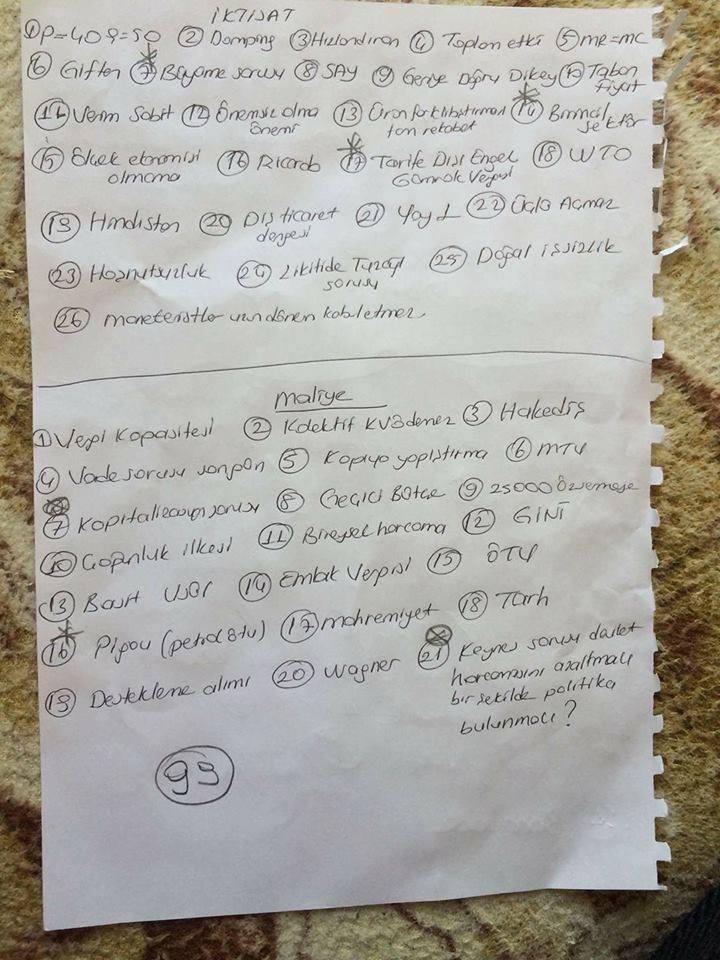 İKTİSAT
① P=40 Q=50 ② Damping ③ Hızlandıran ④ Toplam etki ⑤ MR=MC
⑥ Giffen ⑦ Büyüme sorusu ⑧ SAY ⑨ Geriye Doğru Dikey ⑩ Taban Fiyat
⑪ Verim Sabit ⑫ Önemsiz olma önemi ⑬ Ürün farklılaştırması tam rekabet ⑭ Birincil sektör
⑮ Ölçek ekonomisi olmama ⑯ Ricardo ⑰ Tarife Dışı Engel Gümrük Vergisi ⑱ WTO
⑲ Hindistan ⑳ Dış ticaret dengesi ㉑ Yay L ㉒ Üçlü Açmaz
㉓ Hoşnutsuzluk ㉔ Likitide Tuzağı sorusu ㉕ Doğal işsizlik
㉖ monetaristler uzun dönem kabul etmez
maliye
① Vergi Kapasitesi ② Kolektif KV ödemez ③ Hakediş
④ Vade sorusu şampan ⑤ Kopya yapıştırma ⑥ MTV
⑦ Kapitalizasyon sorusu ⑧ Geçici Bütçe ⑨ 25000
⑩ Çoğunluk ilkesi ⑪ Bireysel harcama ⑫ GİNİ
⑬ Basit usûl ⑭ Emlak Vergisi ⑮ ÖTV
⑯ Pigou (petrol ötv) ⑰ mahremiyet ⑱ Tarh
⑲ Destekleme alımı ⑳ Wagner ㉑ Keynes sorusu devlet
harcamasını azaltmalı
bir şekilde politika
bulunmalı?
93